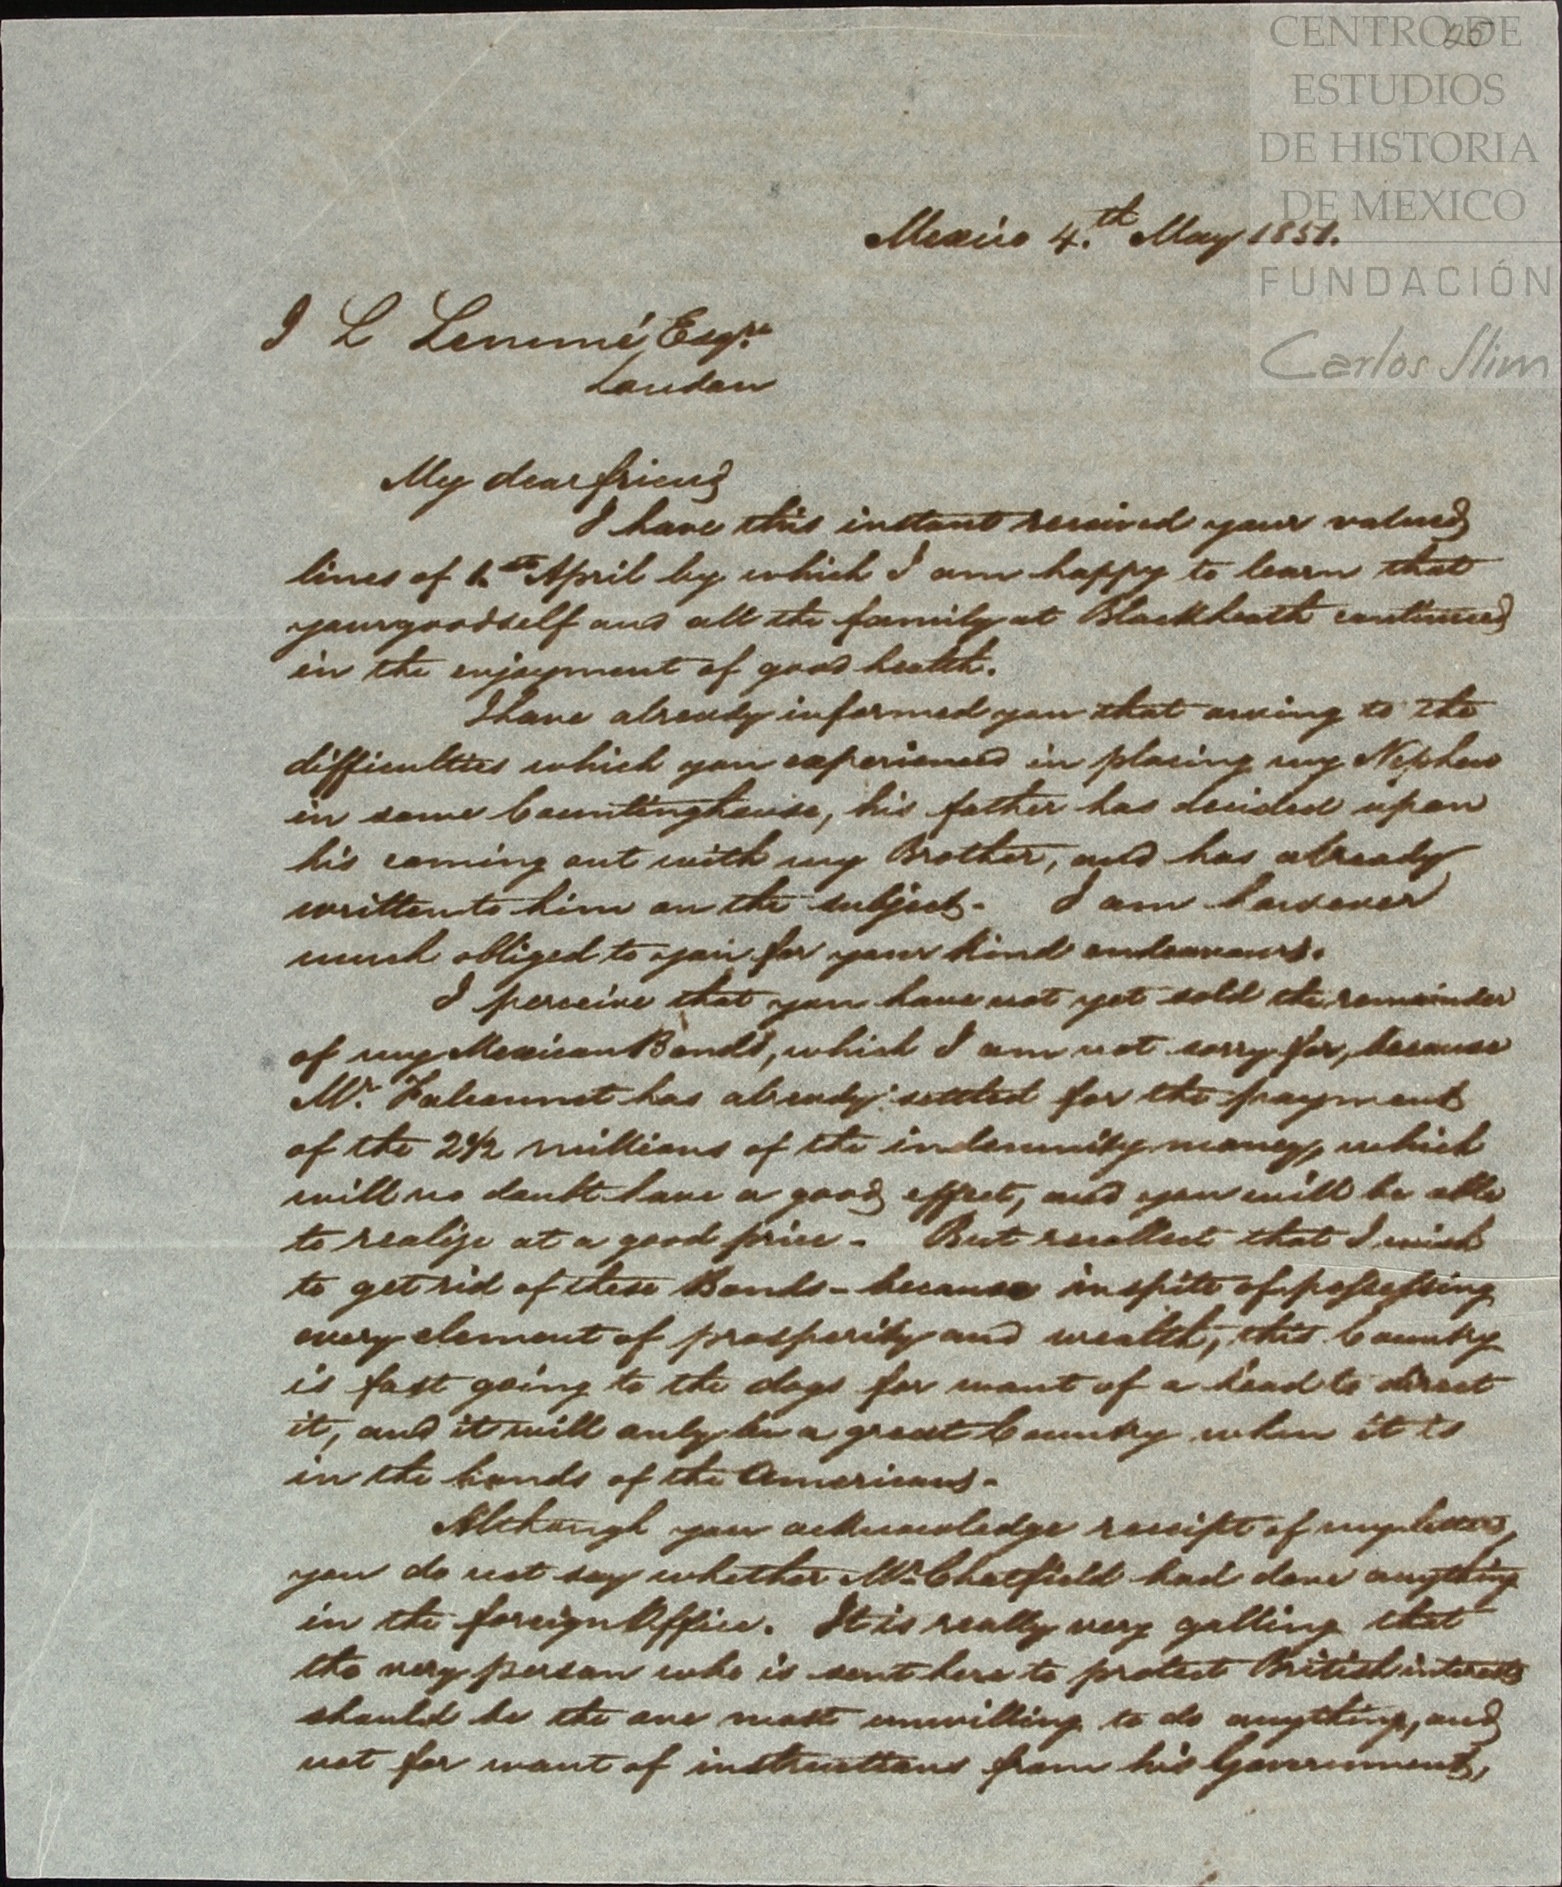 25
CENTRO DE
ESTUDIOS
DE HISTORIA
DE MEXICO
FUNDACIÓN
Carlos Slim
Mexico 4.th May 1851.
J L Lemmé Esqre
London
My dear friend
I have this instant received your valued
lines of 1st April by which I am happy to learn that
yourgoodself and all the family at Blackheath continued
in the enjoyment of good health.
I have already informed you that owing to the
difficulties which you experienced in placing my Nephew
in some Countinghouse, his father has decided upon
his coming out with my Brother, and has already
written to him on the subject. I am however
much obliged to you for your kind endeavours.
I perceive that you have not yet sold the remainder
of my Mexican Bonds, which I am not sorry for, because
Mr. Falconnet has already settled for the payment
of the 2 1/2 millions of the indemnity money, which
will no doubt have a good effect, and you will be able
to realize at a good price - But recollect that I wish
to get rid of these Bonds - because in spite of possessing
every element of prosperity and wealth, this Country
is fast going to the dogs for want of a head to direct
it, and it will only be a great Country when it is
in the hands of the Americans -
Although you acknowledge receipt of my letters,
you do not say whether Mr. Chatfield had done anything
in the foreign Office. It is really very galling that
the very person who is sent here to protect British interests
should be the one most unwilling to do anything, and
not for want of instructions from his Government,